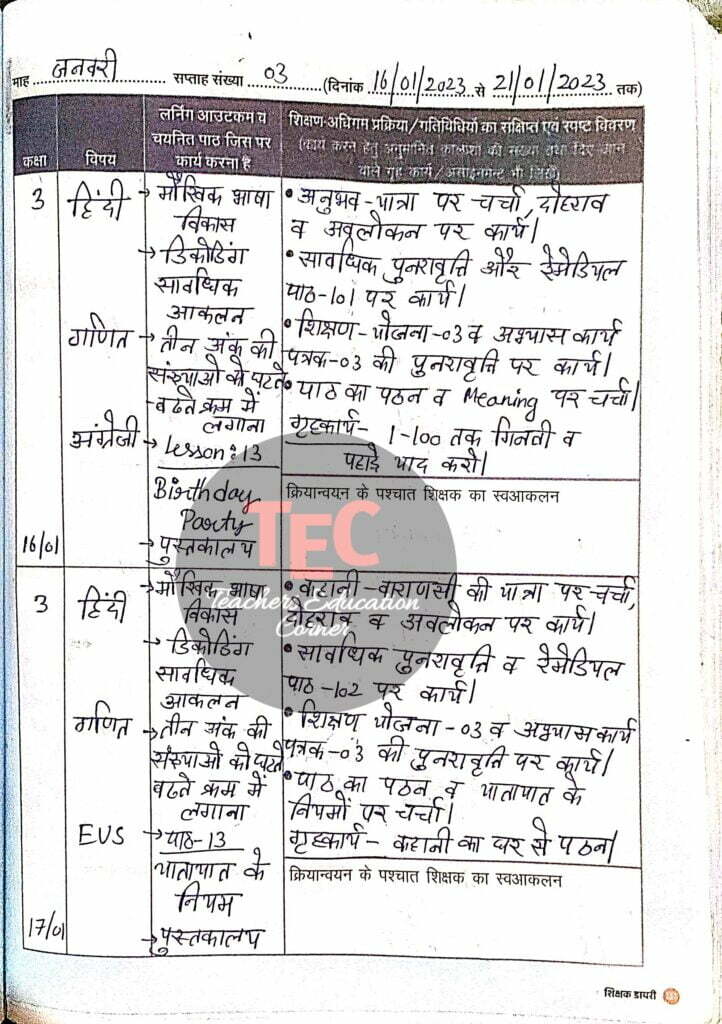 माह जनवरी सप्ताह संख्या 03 (दिनांक 16/01/2023 से 21/01/2023 तक)
कक्षा
विषय
लर्निंग आउटकम व
चयनित पाठ जिस पर
कार्य करना है
शिक्षण-अधिगम प्रक्रिया/गतिविधियों का संक्षिप्त एवं स्पष्ट विवरण
(कार्य करने हेतु अनुमानित कालांशों की संख्या तथा दिए जाने
वाले गृह कार्य/असाइनमेन्ट भी लिखें)
3
हिंदी
→ मौखिक भाषा
विकास
→ डिकोडिंग
सावधिक
आकलन
गणित
→ तीन अंक की
संख्याओं को घटते
बढते क्रम में
लगाना
अंग्रेजी
→ Lesson: 13
Birthday
Party
→ पुस्तकालय
16/01
• अनुभव-यात्रा पर चर्चा, दोहराव
व अवलोकन पर कार्य।
• सावधिक पुनरावृत्ति और रेमेडियल
पाठ-101 पर कार्य।
• शिक्षण-योजना-03 व अभ्यास कार्य
पत्रक-03 की पुनरावृत्ति पर कार्य।
• पाठ का पठन व Meaning पर चर्चा।
गृहकार्य- 1-100 तक गिनती व
पहाड़े याद करो।
क्रियान्वयन के पश्चात शिक्षक का स्वआकलन
TEC
Teachers Education
Corner
3
हिंदी
→ मौखिक भाषा
विकास
→ डिकोडिंग
सावधिक
आकलन
गणित
→ तीन अंक की
संख्याओं को घटते
बढते क्रम में
लगाना
EVS
→ पाठ-13
यातायात के
नियम
→ पुस्तकालय
17/01
• कहानी-वाराणसी की यात्रा पर चर्चा,
दोहराव व अवलोकन पर कार्य।
• सावधिक पुनरावृत्ति व रेमेडियल
पाठ-102 पर कार्य।
• शिक्षण योजना-03 व अभ्यास कार्य
पत्रक-03 की पुनरावृत्ति पर कार्य।
• पाठ का पठन व यातायात के
नियमों पर चर्चा।
गृहकार्य- कहानी का घर से पठन।
क्रियान्वयन के पश्चात शिक्षक का स्वआकलन
शिक्षक डायरी